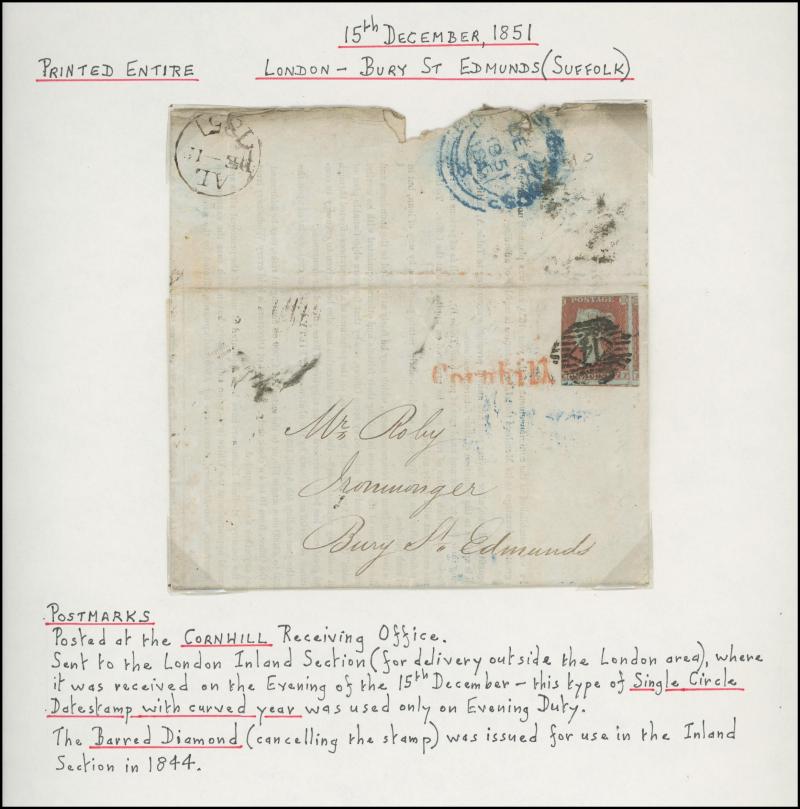 15th DECEMBER, 1851
PRINTED ENTIRE LONDON – BURY ST EDMUNDS (SUFFOLK)
AL
1851
1851
POSTAGE
Cornhill
Mr. Roby
Ironmonger
Bury St. Edmunds
POSTMARKS
Posted at the CORNHILL Receiving Office.
Sent to the London Inland Section (for delivery outside the London area), where
it was received on the Evening of the 15th December – this type of Single Circle
Datestamp with curved year was used only on Evening Duty.
The Barred Diamond (cancelling the stamp) was issued for use in the Inland
Section in 1844.